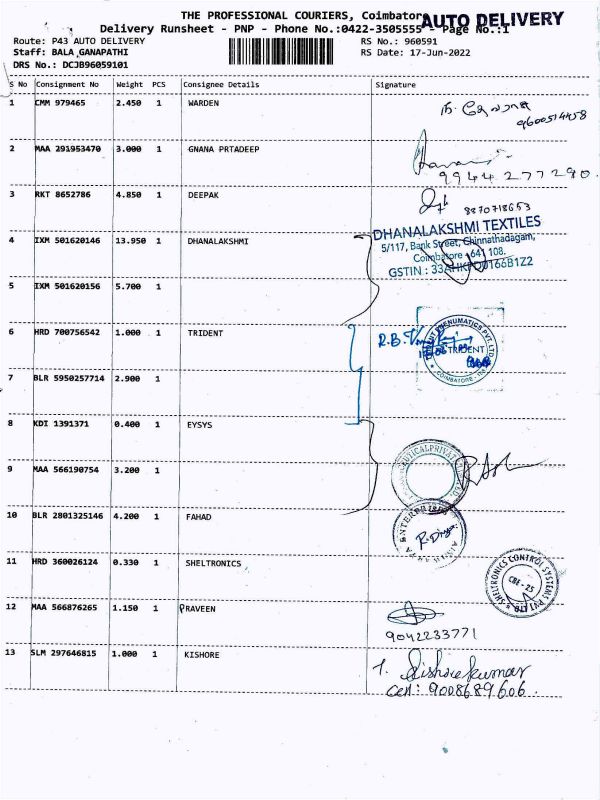 THE PROFESSIONAL COURIERS, Coimbator
AUTO DELIVERY
Delivery Runsheet - PNP - Phone No.:0422-3505555 - Page No.:1
Route: P43 AUTO DELIVERY RS No.: 960591
Staff: BALA GANAPATHI RS Date: 17-Jun-2022
DRS No.: DCJB96059101
S No Consignment No Weight PCS Consignee Details Signature
1 CMM 979465 2.450 1 WARDEN
9600514458
2 MAA 291953470 3.000 1 GNANA PRTADEEP
9944277290.
3 RKT 8652786 4.850 1 DEEPAK
8870718653
DHANALAKSHMI TEXTILES
4 IXM 501620146 13.950 1 DHANALAKSHMI
5/117, Bank Street, Chinnathadagam,
Coimbatore - 641 108.
GSTIN : 33
5 IXM 501620156 5.700 1
6 HRD 700756542 1.000 1 TRIDENT
R.B.
TRIDENT PNEUMATICS PVT. LTD.
TRIDENT
COIMBATORE
7 BLR 5950257714 2.900 1
8 KDI 1391371 0.400 1 EYSYS
9 MAA 566190754 3.200 1
10 BLR 2801325146 4.200 1 FAHAD
11 HRD 360026124 0.330 1 SHELTRONICS
SHELTRONICS CONTROL SYSTEMS PVT LTD
CBE - 25
12 MAA 566876265 1.150 1 PRAVEEN
9042233771
13 SLM 297646815 1.000 1 KISHORE
T. Kishorekumar
Cell: 9008689606.